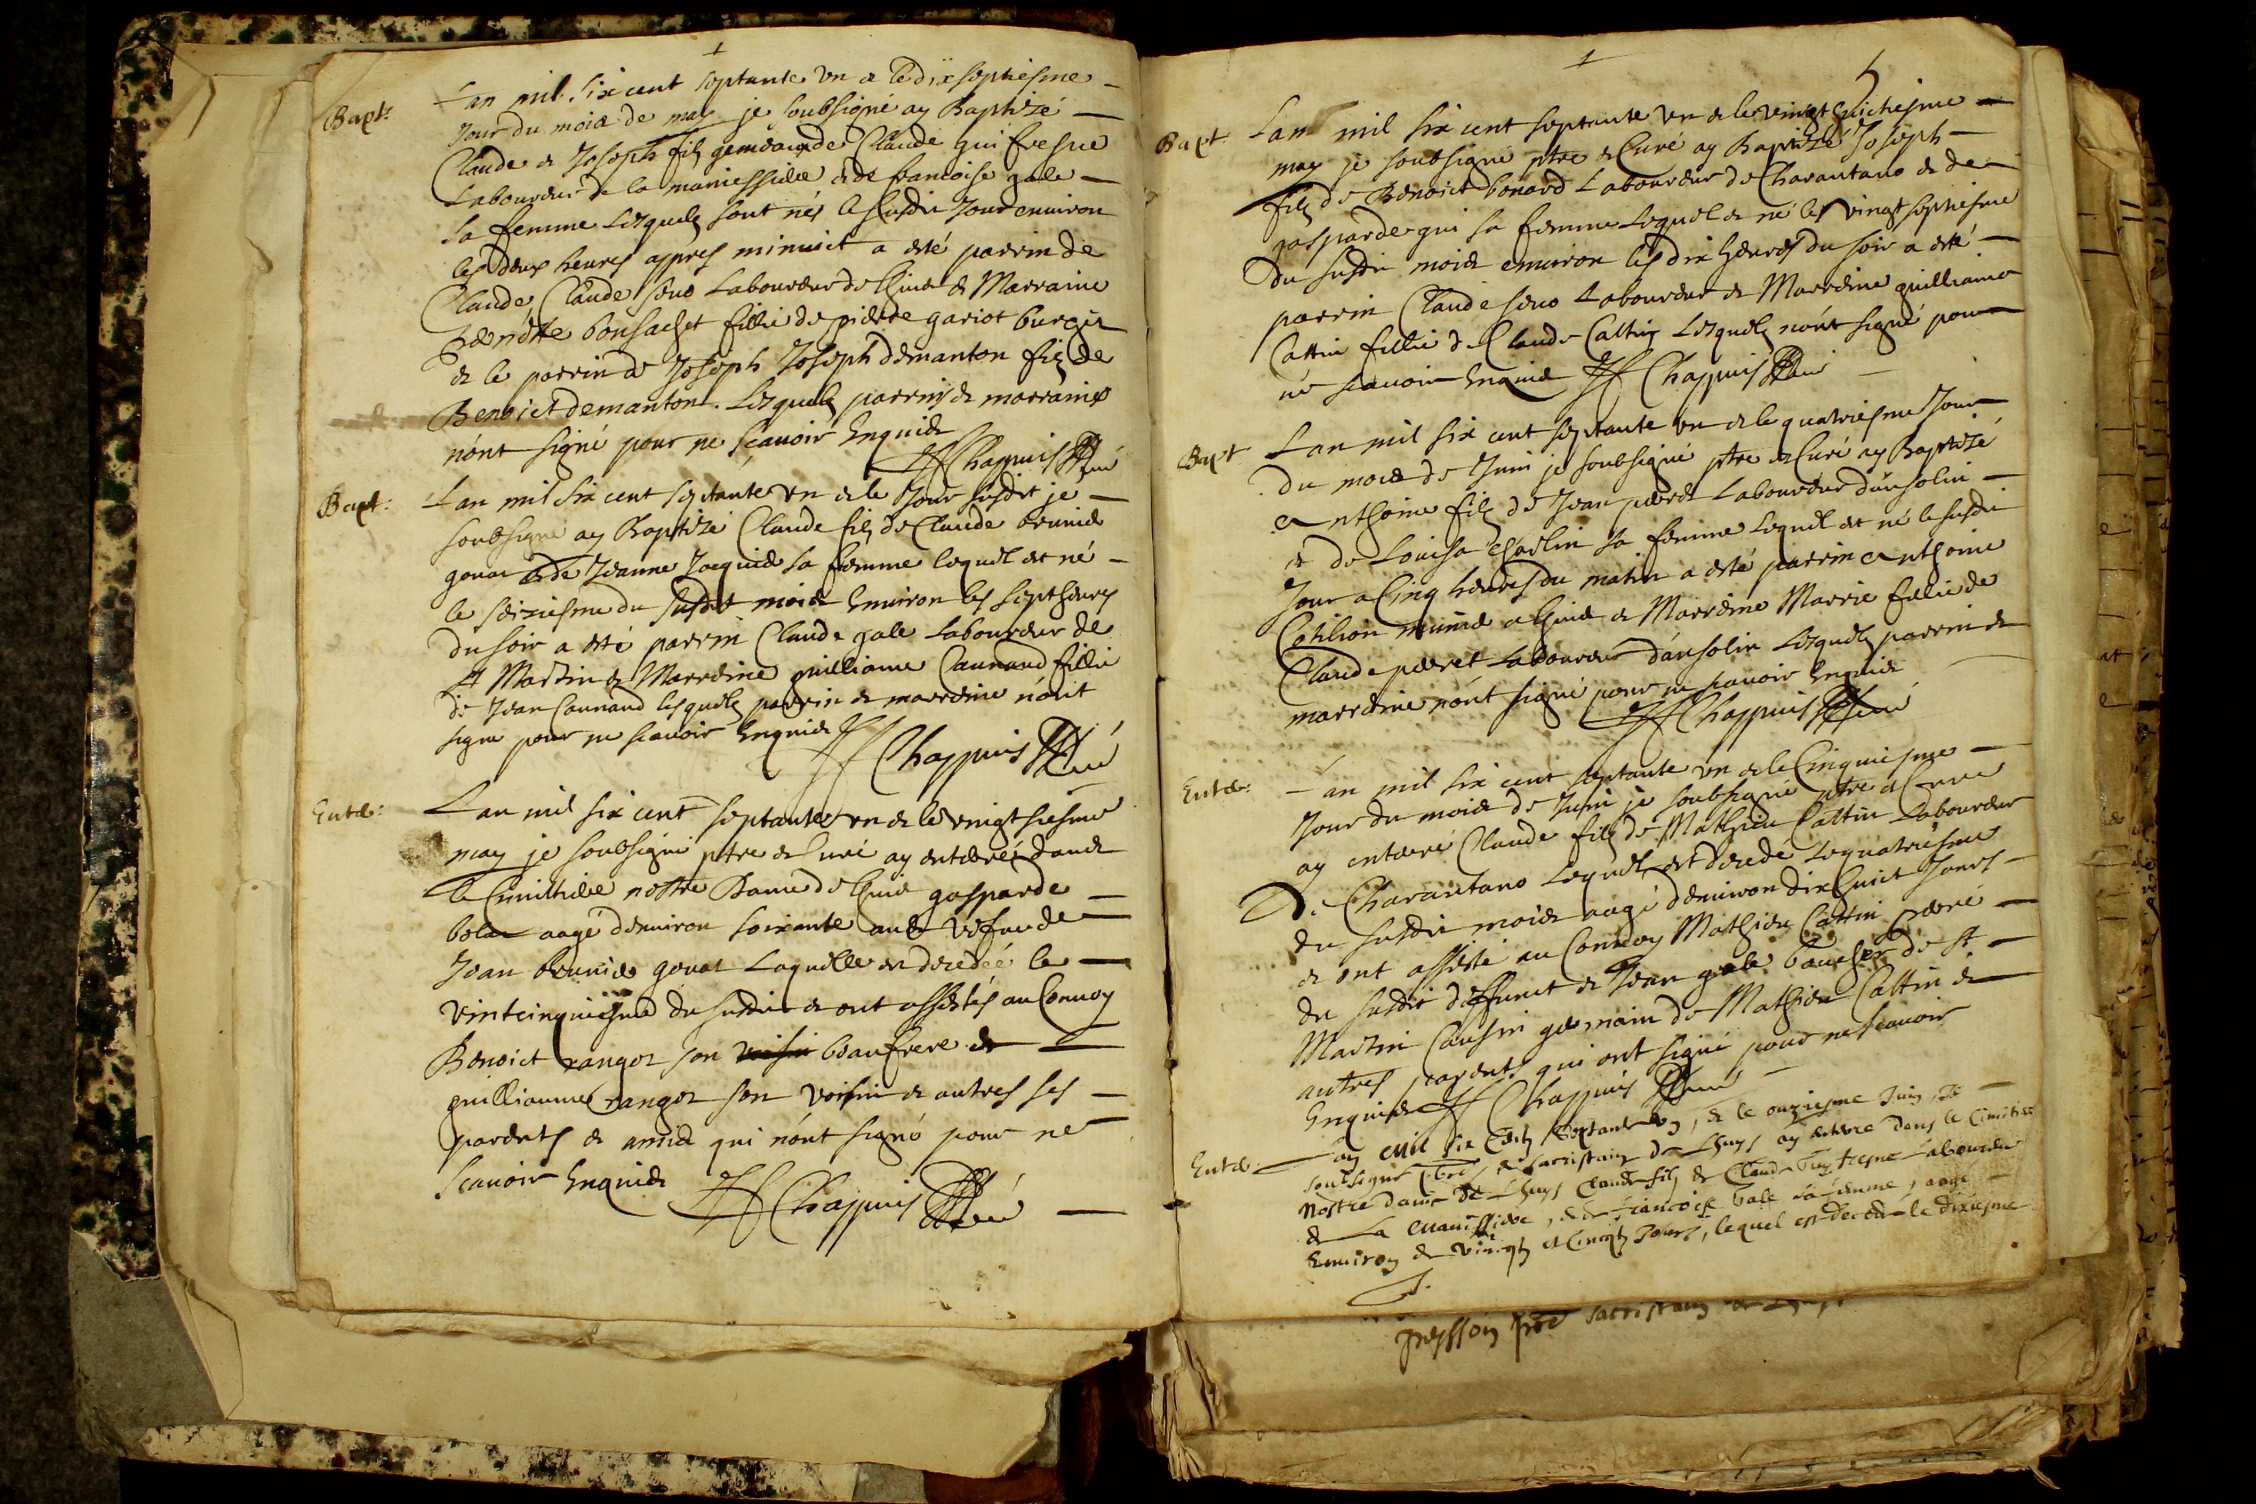 Bapt:
Lan mil six cent septante un & le dixseptiesme
Jour du mois de may je soubsigné ay Baptizé
Claude & Joseph filz gemeaux de Claude guifresne
Laboureur de la maniessiere & de francoise gale
sa femme Lesquelz sont nés le susdit Jour environ
les deux heures appres minuict a esté parrin de
Claude Claude Laboureur de Lhuis & Marraine
bonsachet fillie de pierre gariot
& le parrin de Joseph Joseph demanton filz de
Benoict demanton. Lesquelz parrins & marraines
n'ont signé pour ne scavoir Enquis
Chappuis curé
Bapt:
Lan mil six cent septante un & le Jour susdit je
soubsigné ay Baptizé Claude filz de Claude brunie
gonat & de Jeanne Jacquie sa femme lequel est né
le seiziesme du susdit mois Environ les sept heures
du soir a esté parrin Claude gale Laboureur de
St Martin & Marreine guilliame Caunand fillie
de Jean Caunand lesquelz parrin & marreine n'ont
signé pour ne scavoir Enquis
Chappuis curé
Enter:
Lan mil six cent septante un & le vingt siesme
may je soubsigné ptre & curé ay enterré dans
le Cimitiere nostre Dame de Lhuis gasparde
aagé d'environ soixante ans vefve de
Jean brunie gonat Laquelle est decedée le
vintcinquiesme du susdit & ont assistés au Convoy
Benoict rangot son voisin beaufrere &
guilliaume rangot son voisin & autres ses
parents & amis qui n'ont signé pour ne
scavoir Enquis Chappuis curé
5
Bapt:
Lan mil six cent septante un & le vingt huictiesme
may je soubsigné ptre & Curé ay Baptizé Joseph
filz de Benoict bonard Laboureur de Charantano & de
gasparde gui sa femme Lequel est né le vingt septiesme
du susdit mois environ les dix heures du soir a esté
parrin Claude Laboureur & Marreine guilliame
Cattin fillie de Claude Cattin Lesquelz n'ont signé pour
ne scavoir Enquis Chappuis curé
Bapt
Lan mil six cent septante un & le quatriesme Jour
du mois de Juin je soubsigné ptre & Curé ay Baptizé
Anthoine filz de Jean peeret Laboureur d'ansolin
& de Louisa sa femme Lequel est né le susdit
Jour a Cinq heures du matin a esté parrin Anthoine
a Lhuis & Marreine Marrie fillie de
Claude peeret Laboureur d'ansolin Lesquelz parrin &
marreine n'ont signé pour ne scavoir Enquis
Chappuis curé
Enter:
Lan mil six cent septante un & le Cinquiesme
Jour du mois de Juin je soubsigné ptre & Curé
ay enterré Claude filz de Mathieu Cattin Laboureur
De Charantano Lequel est decedé Le quatriesme
du susdit mois aagé d'environ dix huict Jours
& ont assisté au Convoy Mathieu Cattin peere
du susdit deffunct & Jean gale de St
Martin Cousin germain de Mathieu Cattin &
autres parents qui ont signé pour ne scavoir
Enquis Chappuis curé
Enter:
Lan mil six cents septante un, & le onziesme Juin, Je
soubsigné ptre & sacristain de Lhuys ay enterré dans le Cimitiere
Nostre dame de Lhuys Claude filz de Claude Laboureur
de La manissiere, & de francoise Gale sa femme, aage
Environ de vingt et Cincq Jours, lequel est decedé le dixiesme
presson ptre sacristain